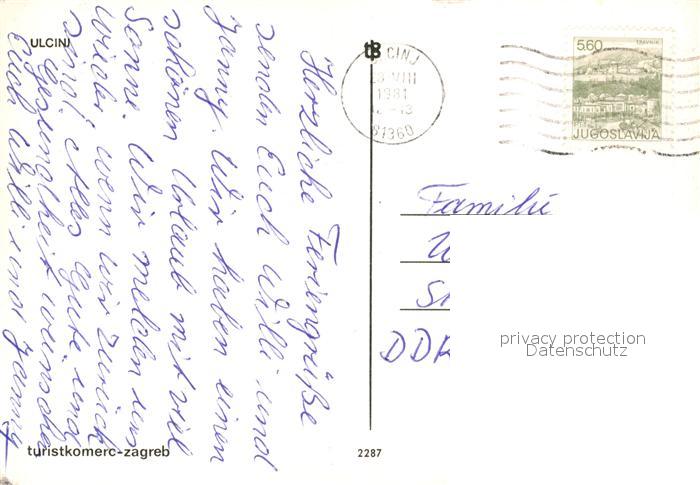 ULCINJ
Herzliche Feriengrüße
senden Euch Willi und
Janny. Wir haben einen
schönen Urlaub mit viel
Sonne. Wir melden uns
wieder wenn wir zurück
sind. Alles Gute und
Gesundheit wünschen
Euch Willi und Janny
tB
ULCINJ
28 VIII
1981
-13
81360
5.60
TRAVNIK
JUGOSLAVIJA
Familie
U
St
DDR
privacy protection
Datenschutz
turistkomerc-zagreb
2287